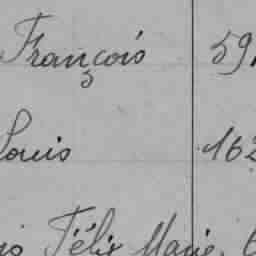 François 59
Louis 162
Félix Marie